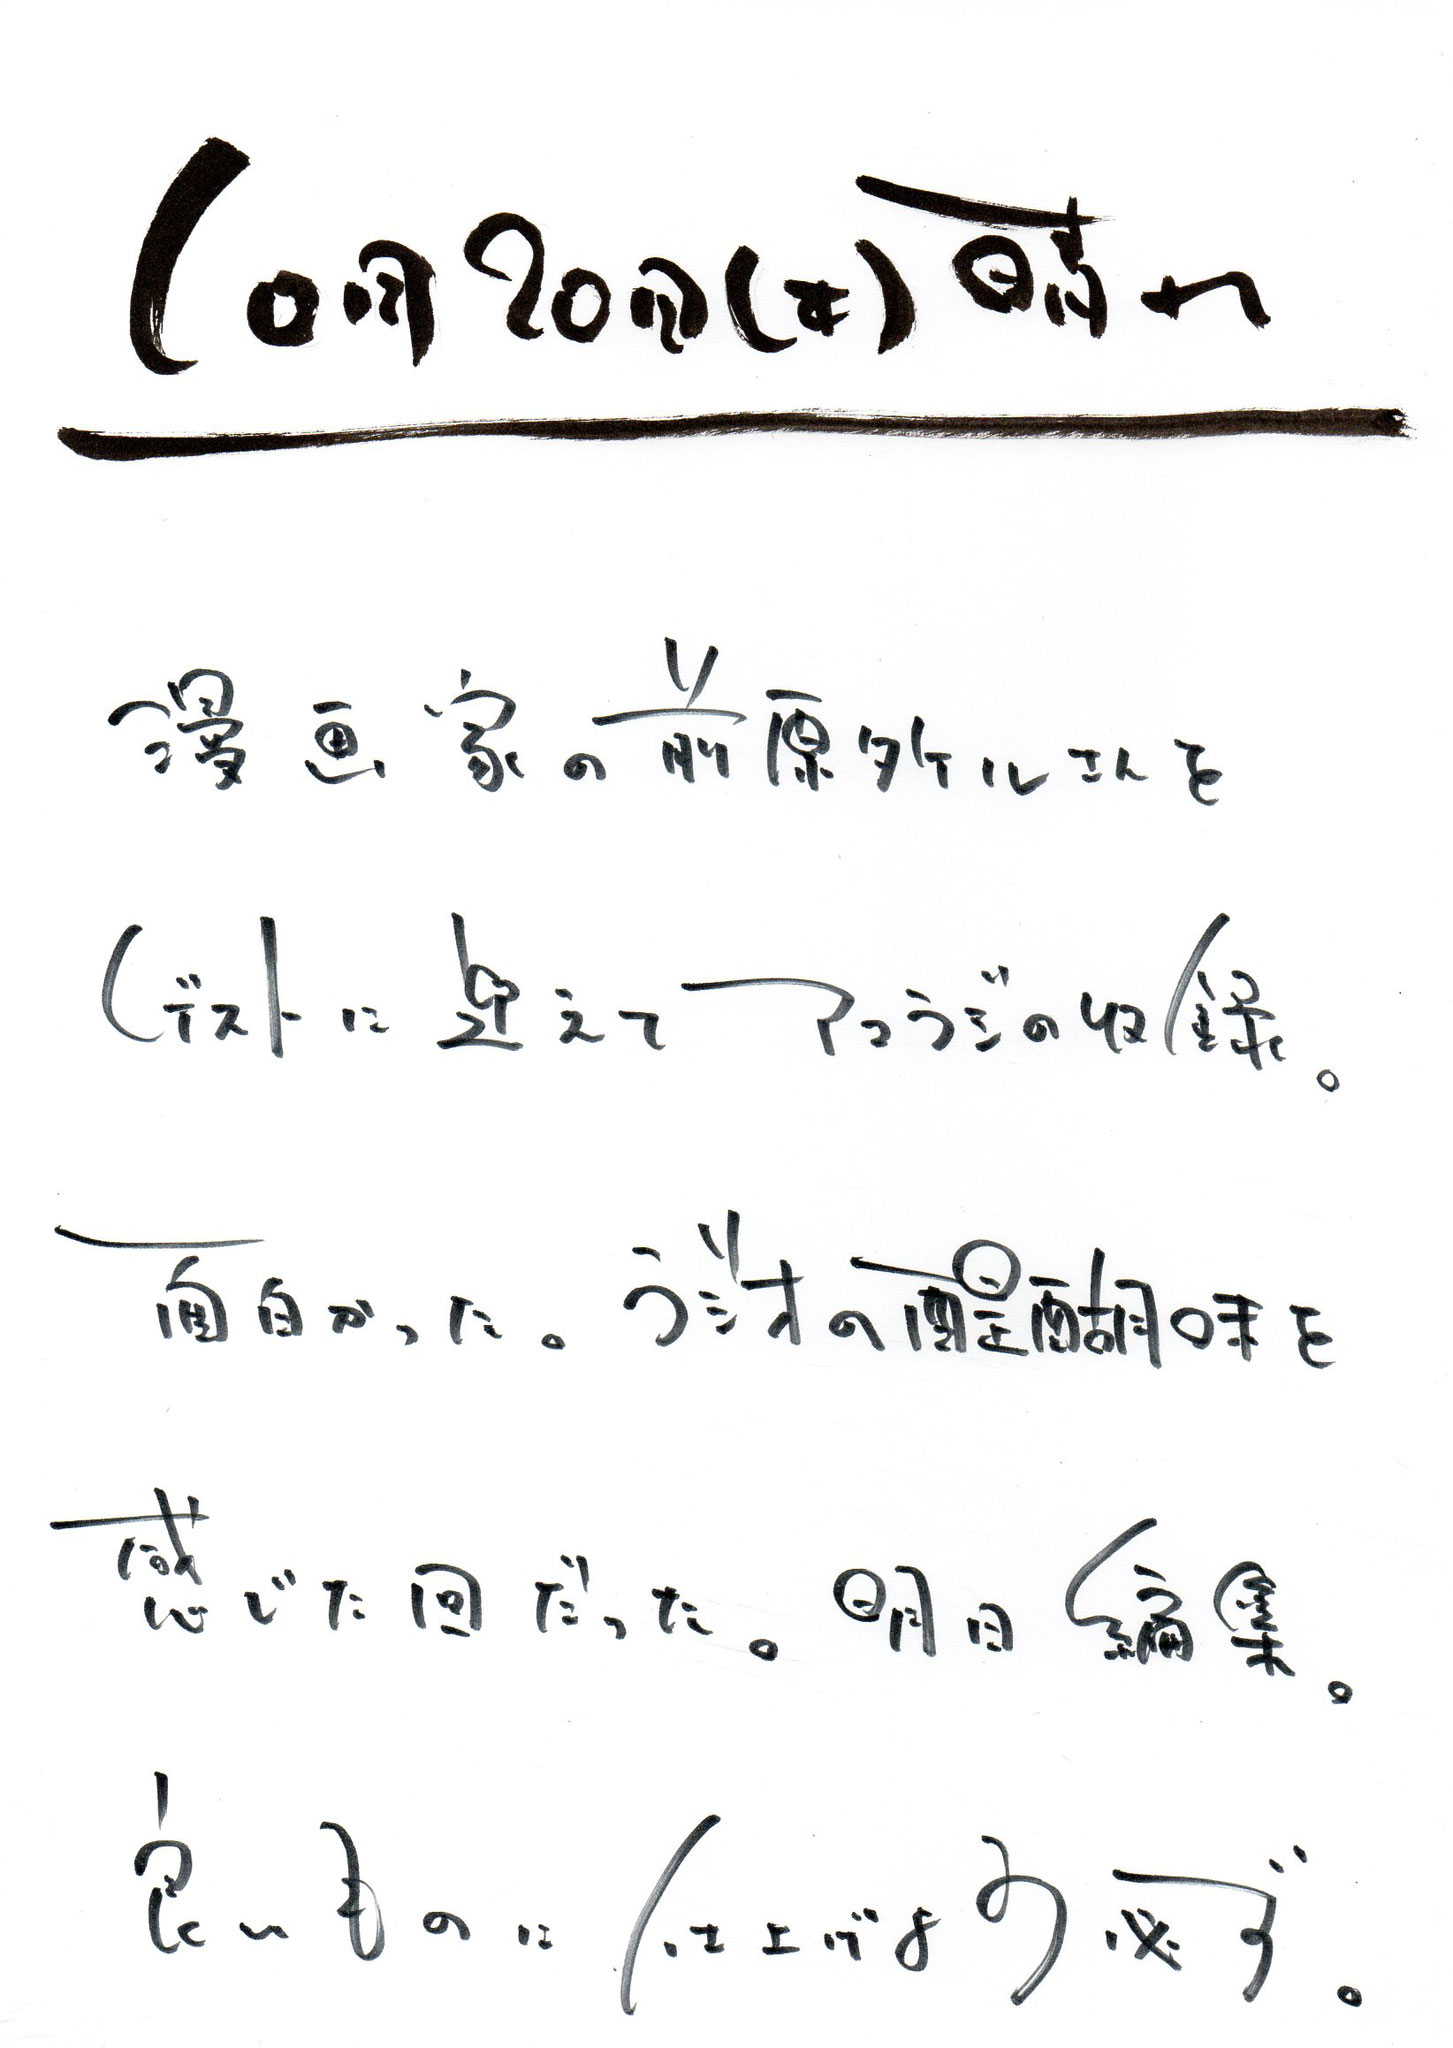 10月20日(木)晴れ
漫画家の前原タケルさんを
ゲストに迎えてアコラジの収録。
面白かった。ラジオの醍醐味を
感じた回だった。明日編集。
良いものに仕上げよう必ず。